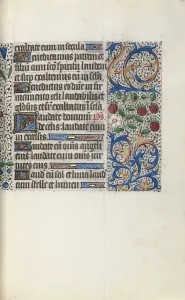 exaltate eum in secula
Benedicamus patrem et
filium cum sancto spiritu laudem
et superexaltemus eum in secula
Benedictus es domine in fir
mamento celi et laudabilis et
gloriosus et in secula
Laudate dominum
de celis laudate eum
in excelsis
Laudate eum omnes angeli
eius laudate eum omnes vir
tutes eius
Laudate eum sol et luna laudate
eum stelle et lumen